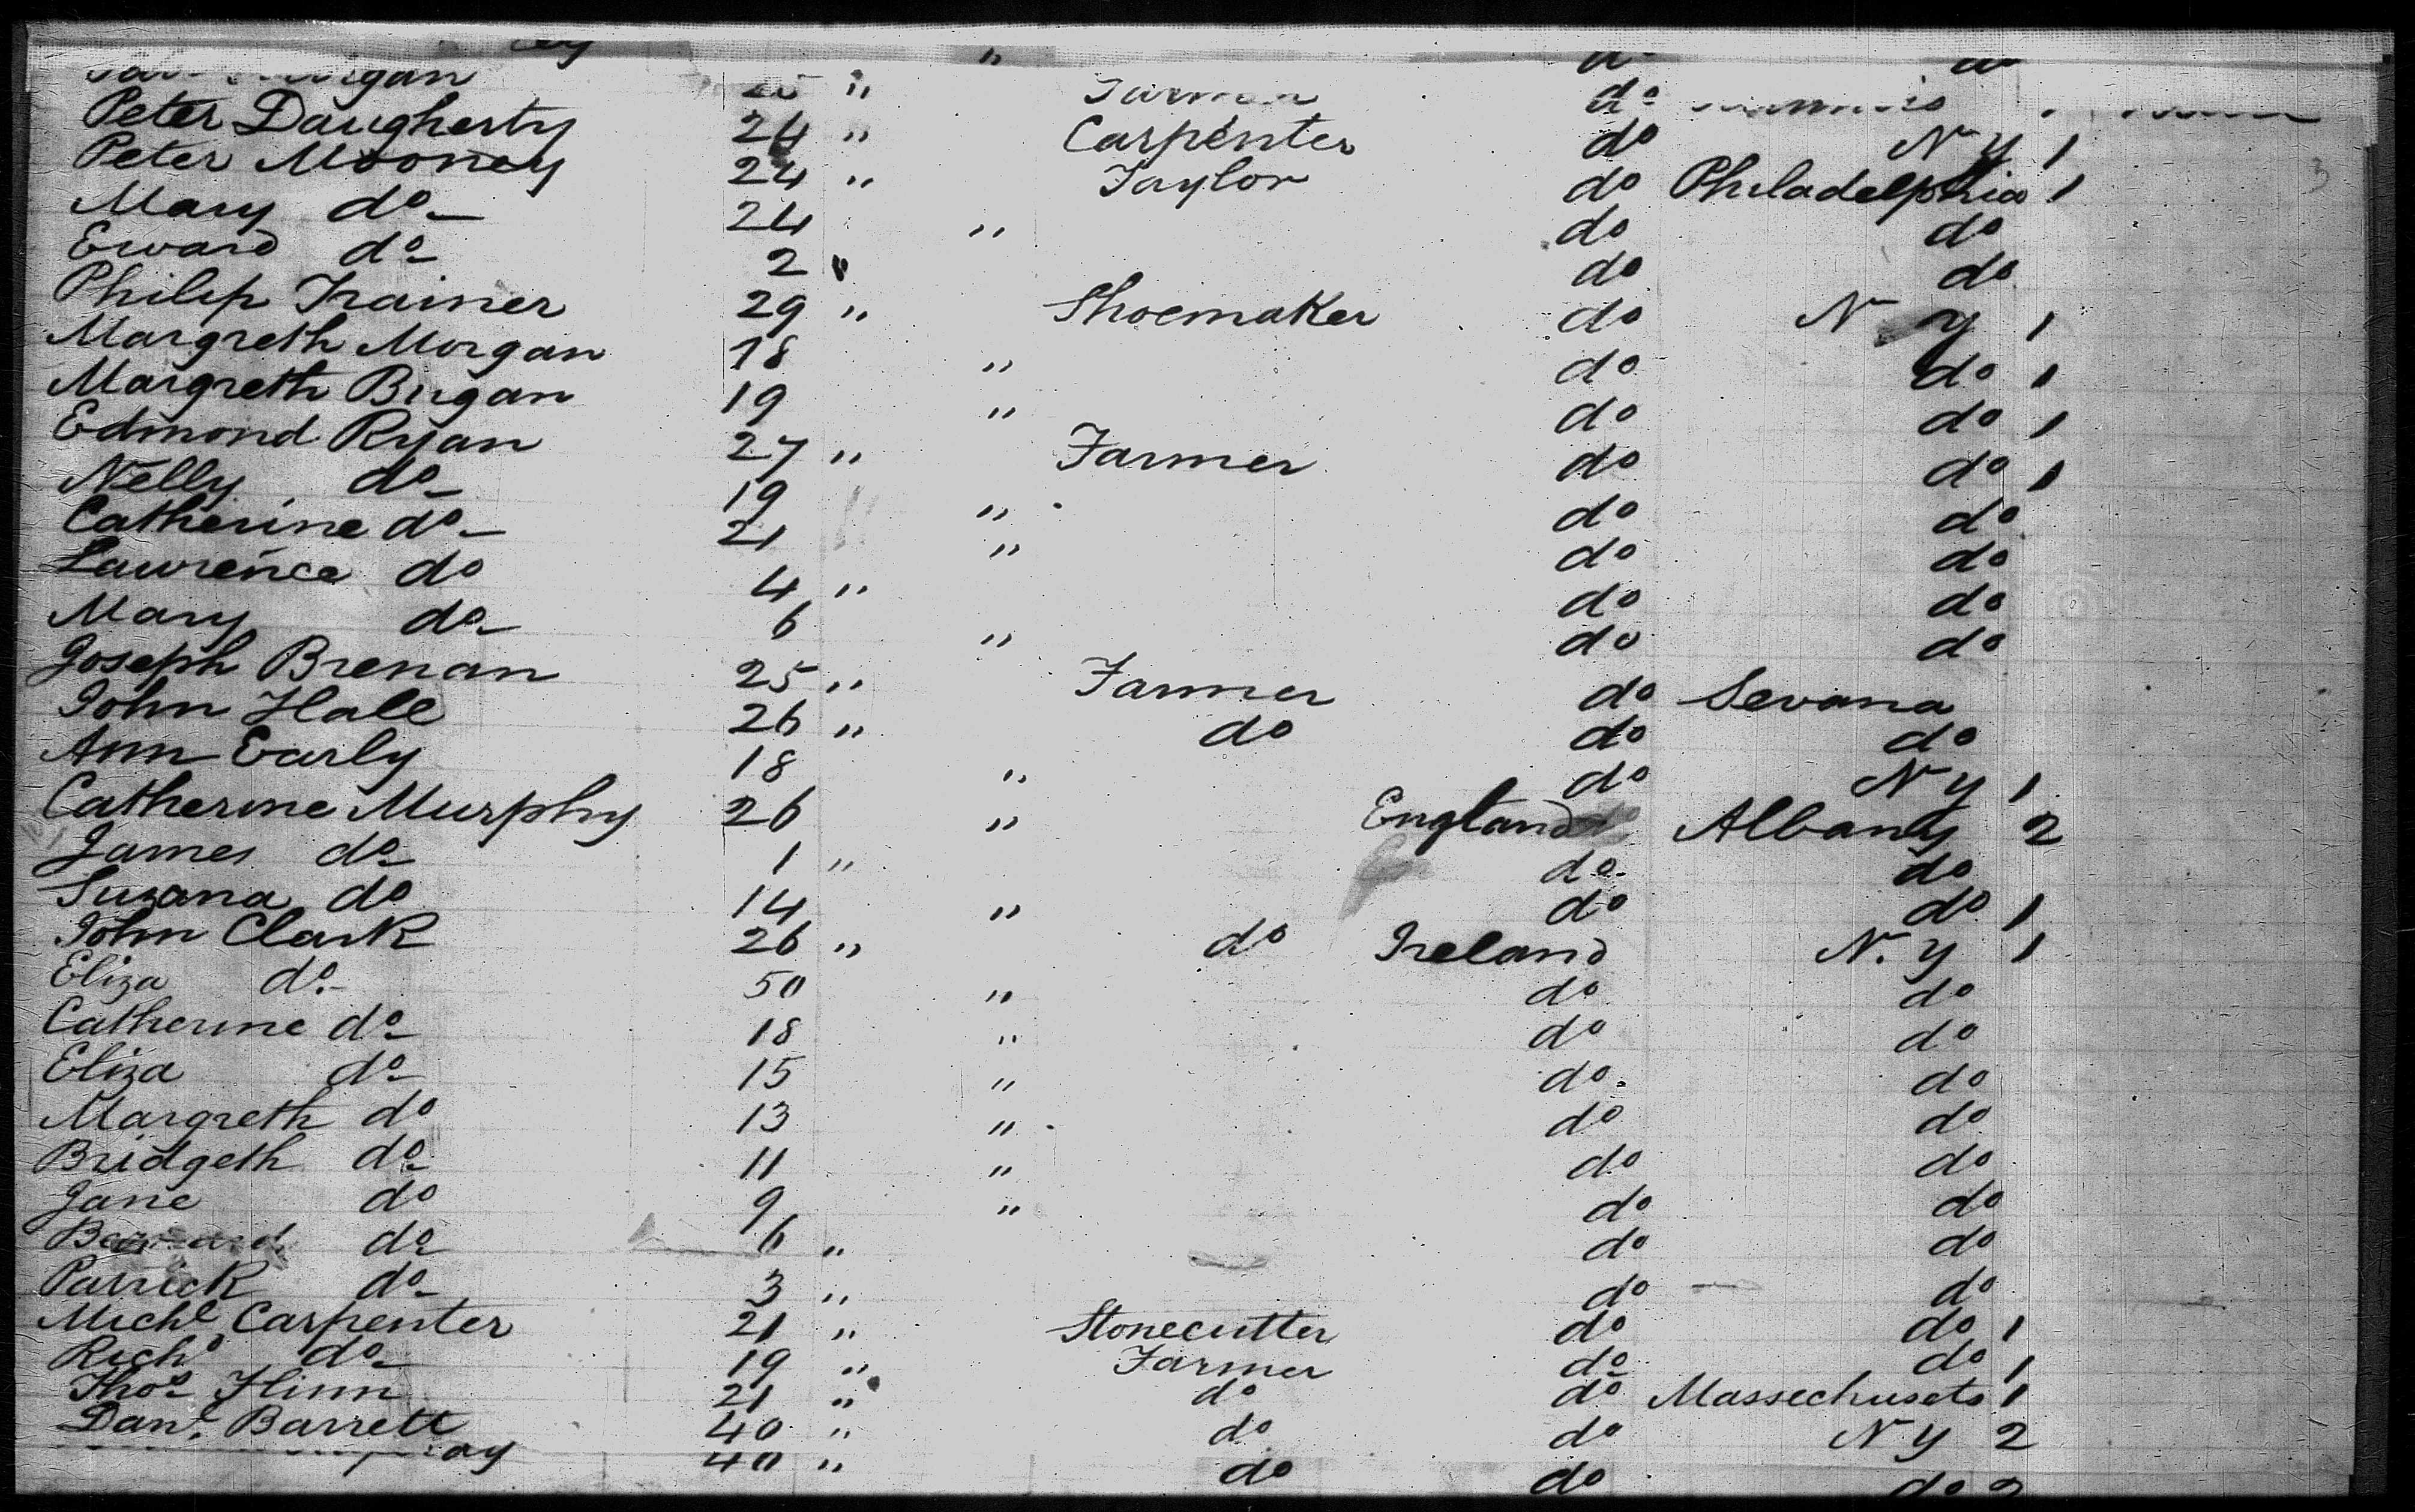 " do
Farmer do
Peter Daugherty 24 " Carpenter do N Y 1
Peter Mooney 24 " Taylor do Philadelphia 1
Mary do 24 " do do
Eward do 2 " do do
Philip Trainer 29 " Shoemaker do N Y 1
Margreth Morgan 18 " do do 1
Margreth Birgan 19 " do do 1
Edmond Ryan 27 " Farmer do do 1
Nelly do 19 " do do
Catherine do 21 " do do
Lawrence do 4 " do do
Mary do 6 " do do
Joseph Brenan 25 " Farmer do Sevana
John Hall 26 " do do do
Ann Early 18 " do N Y 1
Catherine Murphy 26 " England Albany 2
James do 1 " do do
Suzana do 14 " do do 1
John Clark 26 " do Ireland N. Y 1
Eliza do 50 " do do
Catherine do 18 " do do
Eliza do 15 " do do
Margreth do 13 " do do
Bridgeth do 11 " do do
Jane do 9 " do do
Bernard do 6 " do do
Patrick do 3 " do do
Michl Carpenter 21 " Stonecutter do do 1
Richd do 19 " Farmer do do 1
Thos Flinn 21 " do do Massechusets 1
Danl Barrett 40 " do do N Y 2
40 " do do do 2